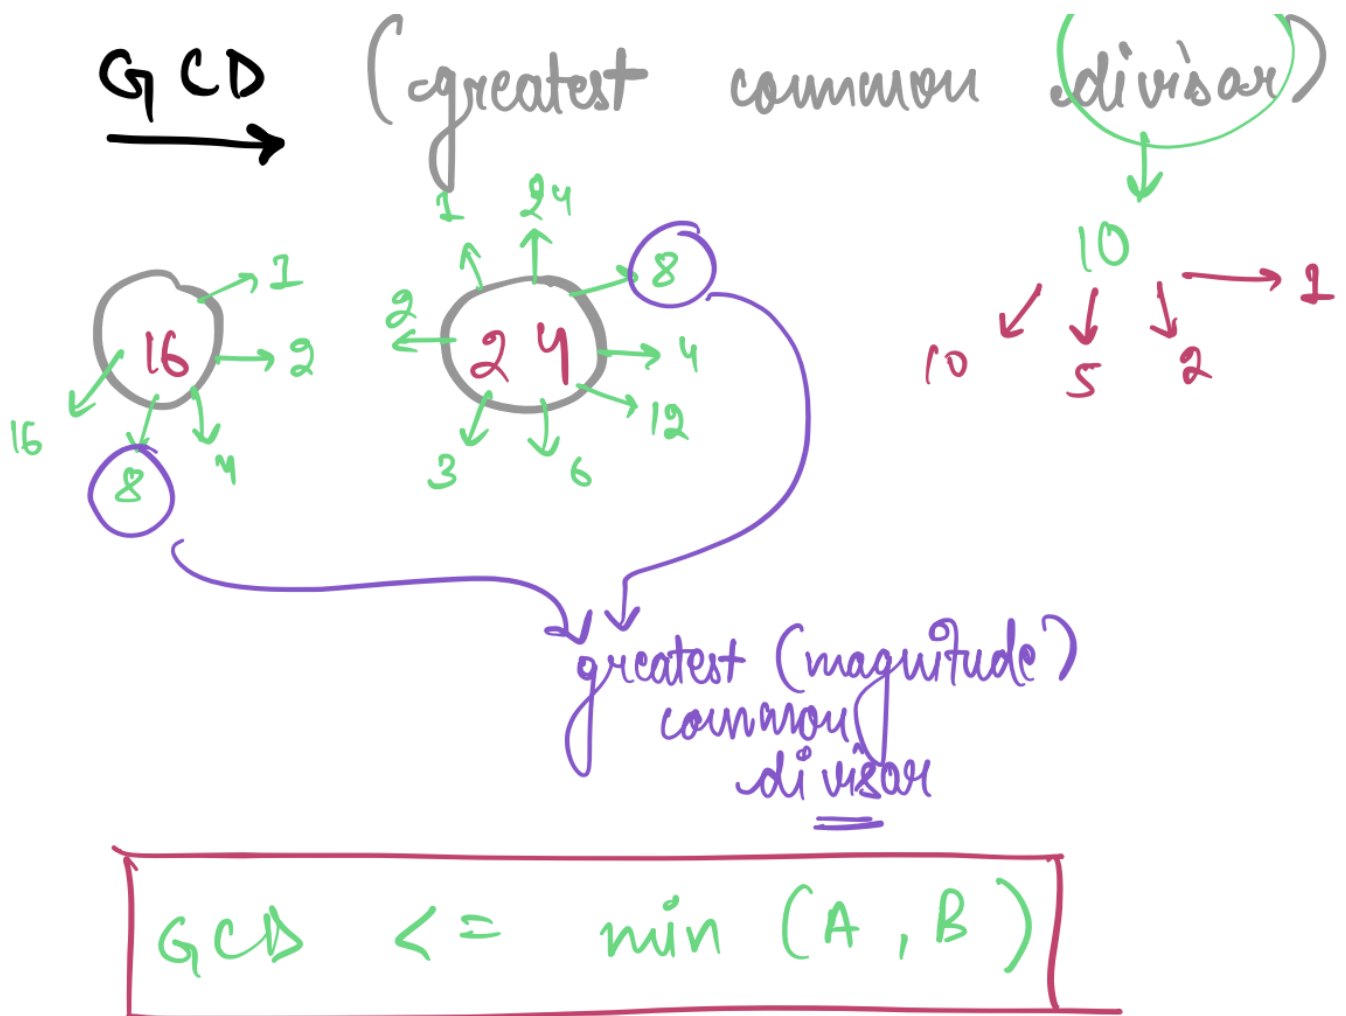 GCD (greatest common divisor)
10
1
10 5 2
16
1
2
4
8
16
24
1
24
8
4
12
6
3
2
greatest (magnitude)
common
divisor
GCD <= min (A, B)